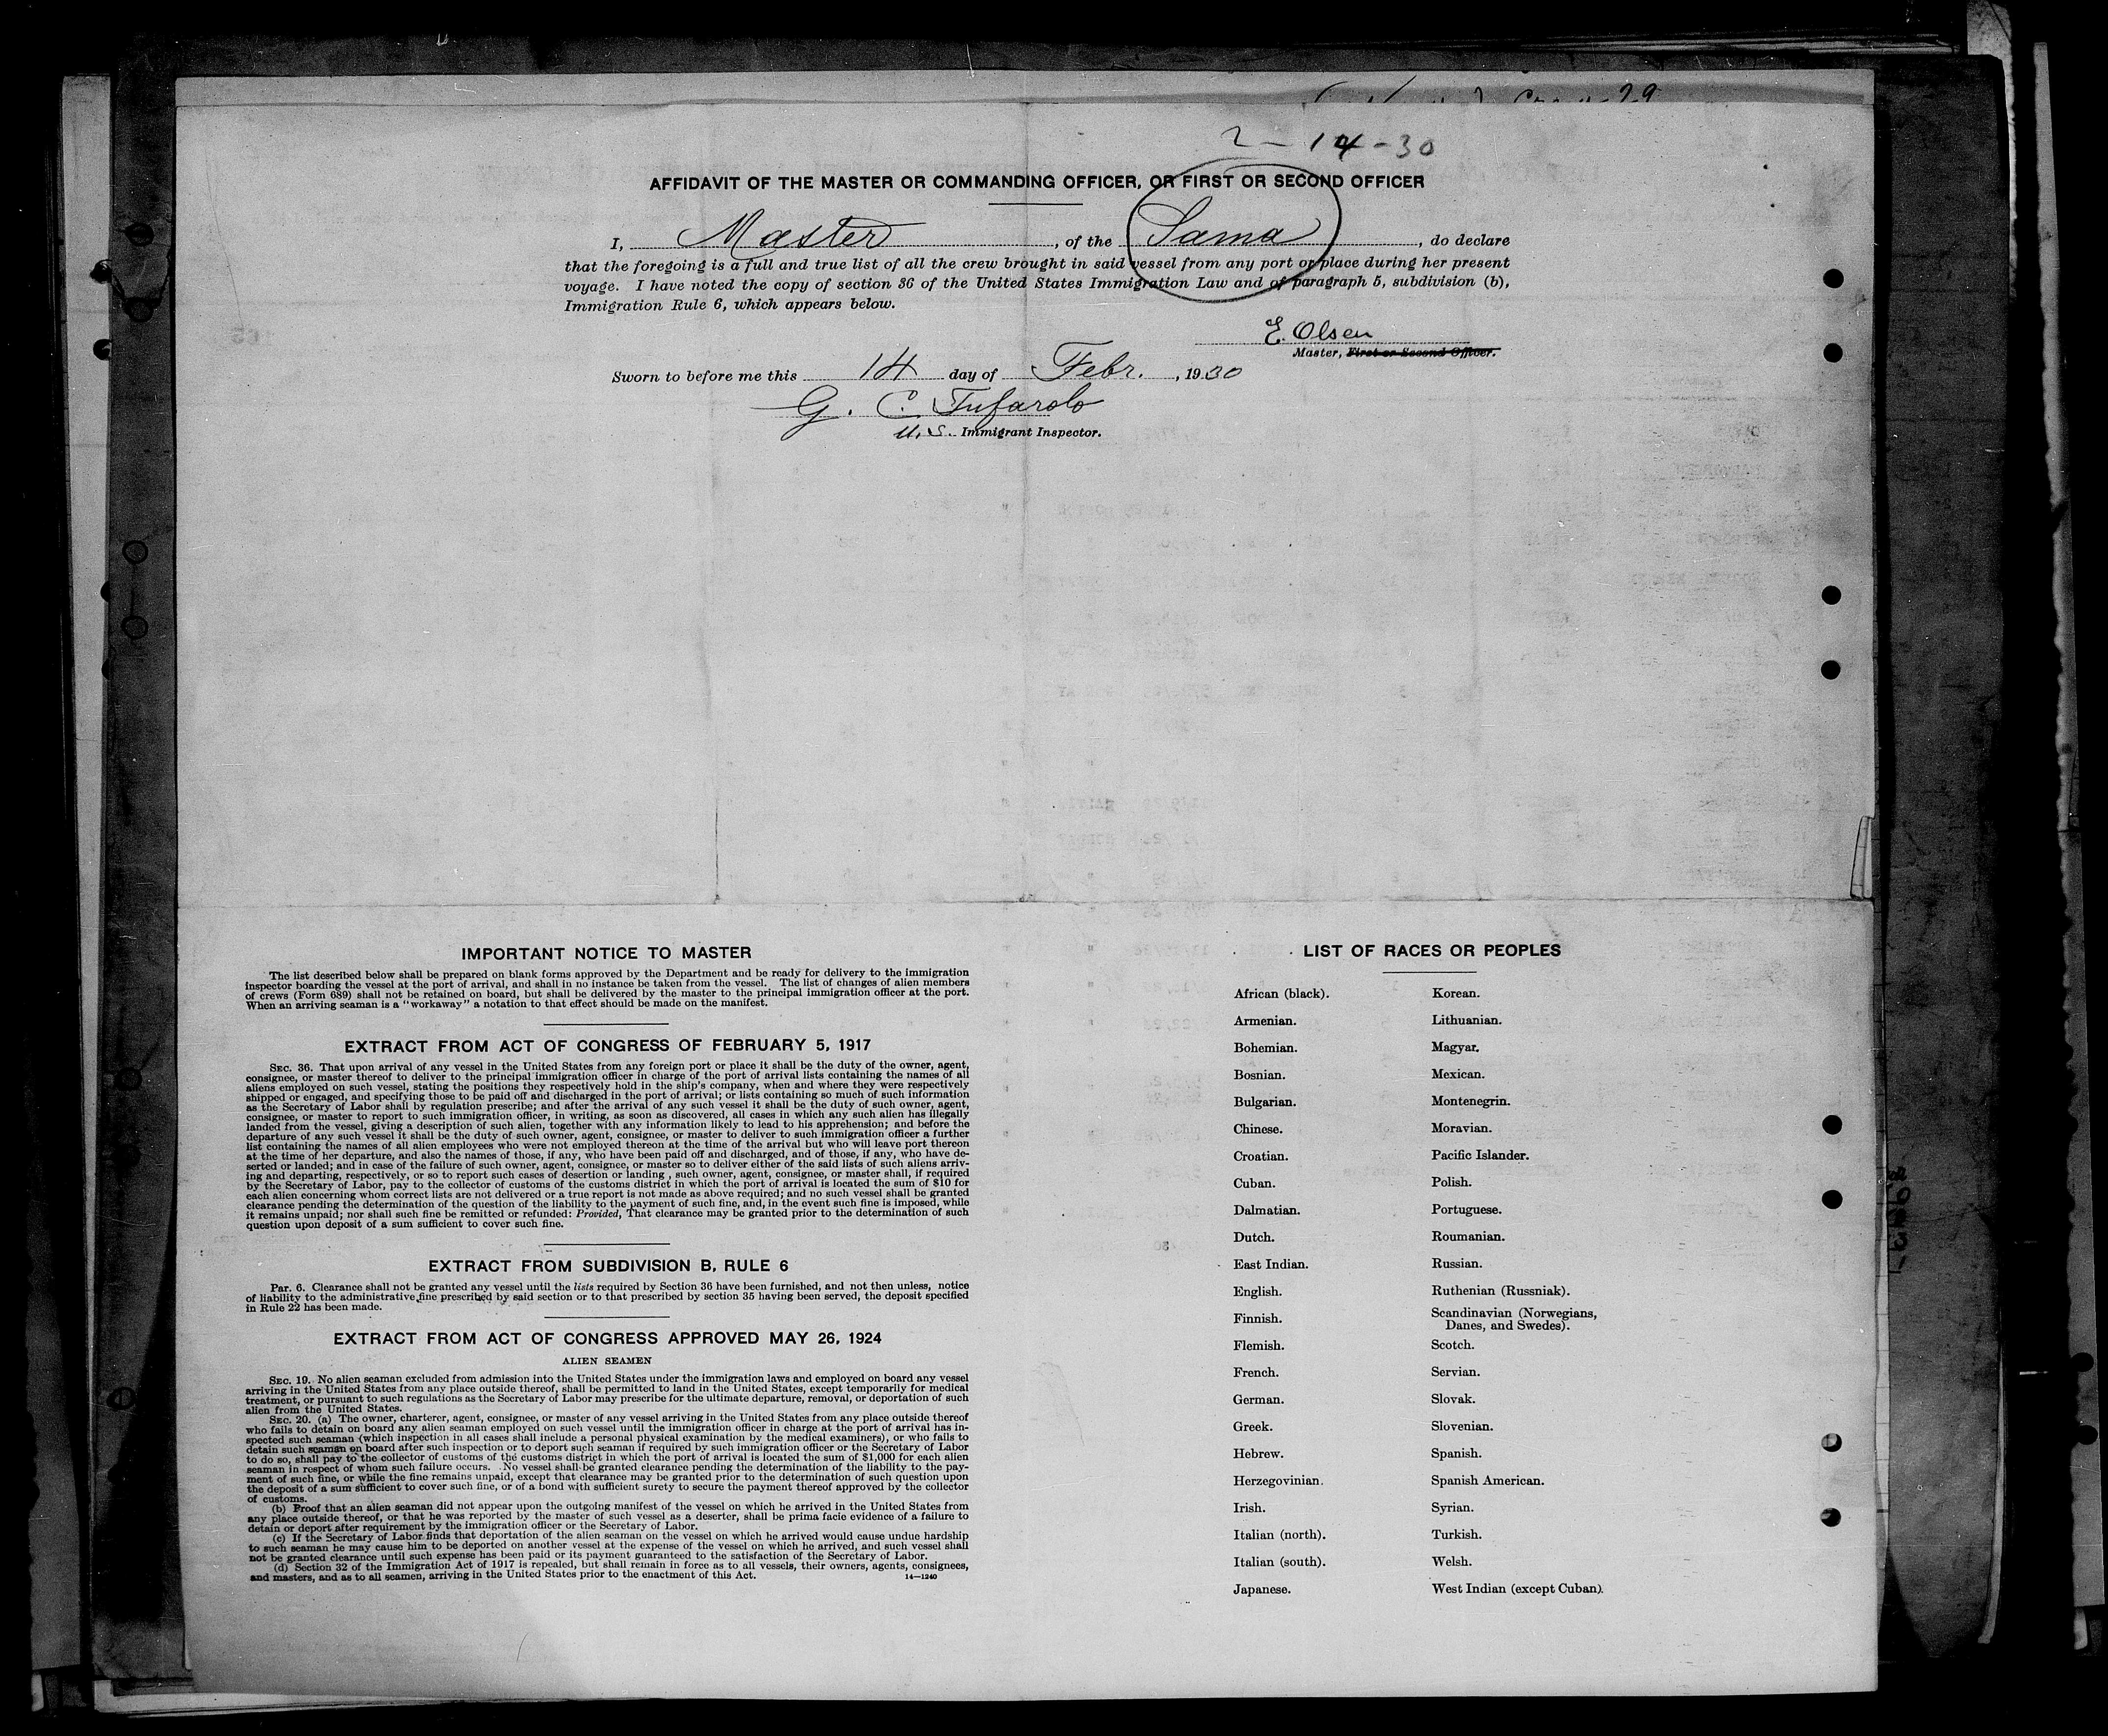 2-14-30
AFFIDAVIT OF THE MASTER OR COMMANDING OFFICER, OR FIRST OR SECOND OFFICER
I, Master, of the Sama, do declare
that the foregoing is a full and true list of all the crew brought in said vessel from any port or place during her present
voyage. I have noted the copy of section 36 of the United States Immigration Law and of paragraph 5, subdivision (b),
Immigration Rule 6, which appears below.
E. Olsen
Master, First or Second Officer.
Sworn to before me this 14 day of Febr., 1930
G. C. Tufarolo
U.S. Immigrant Inspector.
IMPORTANT NOTICE TO MASTER
The list described below shall be prepared on blank forms approved by the Department and be ready for delivery to the immigration
inspector boarding the vessel at the port of arrival, and shall in no instance be taken from the vessel. The list of changes of alien members
of crews (Form 689) shall not be retained on board, but shall be delivered by the master to the principal immigration officer at the port.
When an arriving seaman is a "workaway" a notation to that effect should be made on the manifest.
EXTRACT FROM ACT OF CONGRESS OF FEBRUARY 5, 1917
SEC. 36. That upon arrival of any vessel in the United States from any foreign port or place it shall be the duty of the owner, agent,
consignee, or master thereof to deliver to the principal immigration officer in charge of the port of arrival lists containing the names of all
aliens employed on such vessel, stating the positions they respectively hold in the ship's company, when and where they were respectively
shipped or engaged, and specifying those to be paid off and discharged in the port of arrival; or lists containing so much of such information
as the Secretary of Labor shall by regulation prescribe; and after the arrival of any such vessel it shall be the duty of such owner, agent,
consignee, or master to report to such immigration officer, in writing, as soon as discovered, all cases in which any such alien has illegally
landed from the vessel, giving a description of such alien, together with any information likely to lead to his apprehension; and before the
departure of any such vessel it shall be the duty of such owner, agent, consignee, or master to deliver to such immigration officer a further
list containing the names of all alien employees who were not employed thereon at the time of the arrival but who will leave port thereon
at the time of her departure, and also the names of those, if any, who have been paid off and discharged, and of those, if any, who have de-
serted or landed; and in case of the failure of such owner, agent, consignee, or master so to deliver either of the said lists of such aliens arriv-
ing and departing, respectively, or so to report such cases of desertion or landing, such owner, agent, consignee, or master shall, if required
by the Secretary of Labor, pay to the collector of customs of the customs district in which the port of arrival is located the sum of $10 for
each alien concerning whom correct lists are not delivered or a true report is not made as above required; and no such vessel shall be granted
clearance pending the determination of the question of the liability to the payment of such fine, and, in the event such fine is imposed, while
it remains unpaid; nor shall such fine be remitted or refunded: Provided, That clearance may be granted prior to the determination of such
question upon deposit of a sum sufficient to cover such fine.
EXTRACT FROM SUBDIVISION B, RULE 6
Par. 6. Clearance shall not be granted any vessel until the lists required by Section 36 have been furnished, and not then unless, notice
of liability to the administrative fine prescribed by said section or to that prescribed by section 35 having been served, the deposit specified
in Rule 22 has been made.
EXTRACT FROM ACT OF CONGRESS APPROVED MAY 26, 1924
ALIEN SEAMEN
SEC. 19. No alien seaman excluded from admission into the United States under the immigration laws and employed on board any vessel
arriving in the United States from any place outside thereof, shall be permitted to land in the United States, except temporarily for medical
treatment, or pursuant to such regulations as the Secretary of Labor may prescribe for the ultimate departure, removal, or deportation of such
alien from the United States.
SEC. 20. (a) The owner, charterer, agent, consignee, or master of any vessel arriving in the United States from any place outside thereof
who fails to detain on board any alien seaman employed on such vessel until the immigration officer in charge at the port of arrival has in-
spected such seaman (which inspection in all cases shall include a personal physical examination by the medical examiners), or who fails to
detain such seaman on board after such inspection or to deport such seaman if required by such immigration officer or the Secretary of Labor
to do so, shall pay to the collector of customs of the customs district in which the port of arrival is located the sum of $1,000 for each alien
seaman in respect of whom such failure occurs. No vessel shall be granted clearance pending the determination of the liability to the pay-
ment of such fine, or while the fine remains unpaid, except that clearance may be granted prior to the determination of such question upon
the deposit of a sum sufficient to cover such fine, or of a bond with sufficient surety to secure the payment thereof approved by the collector
of customs.
(b) Proof that an alien seaman did not appear upon the outgoing manifest of the vessel on which he arrived in the United States from
any place outside thereof, or that he was reported by the master of such vessel as a deserter, shall be prima facie evidence of a failure to
detain or deport after requirement by the immigration officer or the Secretary of Labor.
(c) If the Secretary of Labor finds that deportation of the alien seaman on the vessel on which he arrived would cause undue hardship
to such seaman he may cause him to be deported on another vessel at the expense of the vessel on which he arrived, and such vessel shall
not be granted clearance until such expense has been paid or its payment guaranteed to the satisfaction of the Secretary of Labor.
(d) Section 32 of the Immigration Act of 1917 is repealed, but shall remain in force as to all vessels, their owners, agents, consignees,
and masters, and as to all seamen, arriving in the United States prior to the enactment of this Act.
14—1240
LIST OF RACES OR PEOPLES
African (black).
Armenian.
Bohemian.
Bosnian.
Bulgarian.
Chinese.
Croatian.
Cuban.
Dalmatian.
Dutch.
East Indian.
English.
Finnish.
Flemish.
French.
German.
Greek.
Hebrew.
Herzegovinian.
Irish.
Italian (north).
Italian (south).
Japanese.
Korean.
Lithuanian.
Magyar.
Mexican.
Montenegrin.
Moravian.
Pacific Islander.
Polish.
Portuguese.
Roumanian.
Russian.
Ruthenian (Russniak).
Scandinavian (Norwegians,
Danes, and Swedes).
Scotch.
Servian.
Slovak.
Slovenian.
Spanish.
Spanish American.
Syrian.
Turkish.
Welsh.
West Indian (except Cuban).